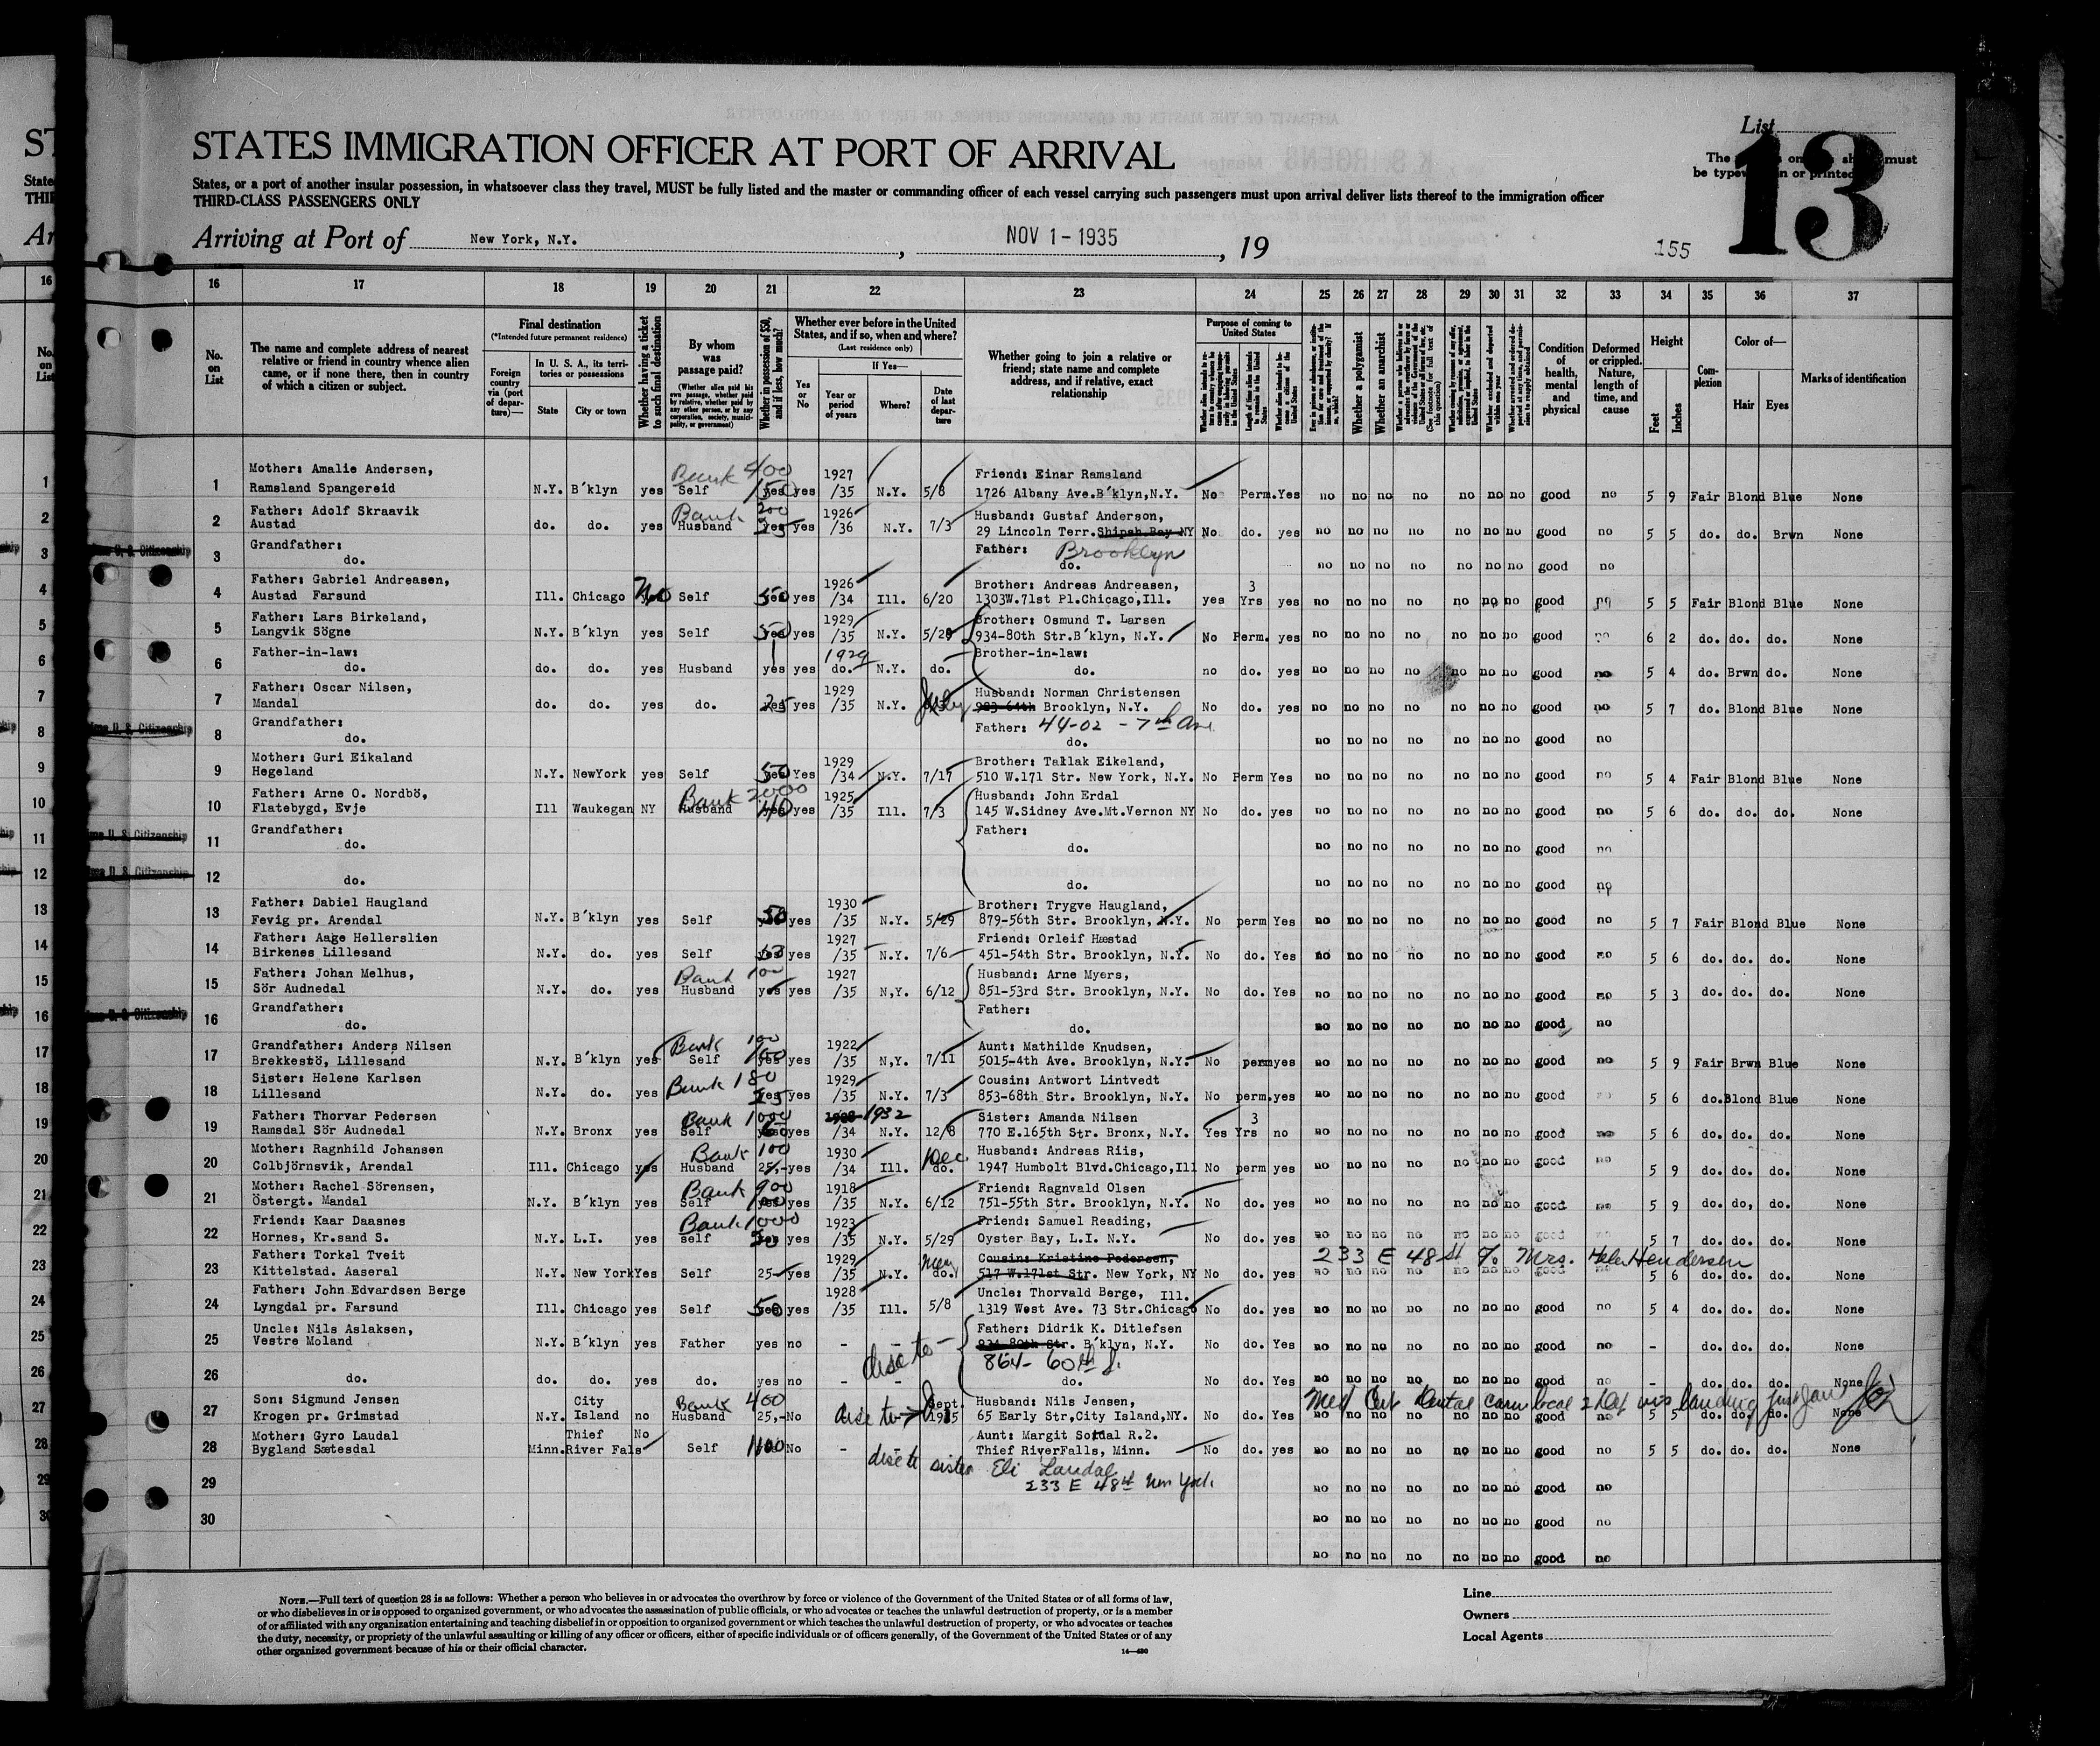 List
13
STATES IMMIGRATION OFFICER AT PORT OF ARRIVAL
States, or a port of another insular possession, in whatsoever class they travel, MUST be fully listed and the master or commanding officer of each vessel carrying such passengers must upon arrival deliver lists thereof to the immigration officer
THIRD-CLASS PASSENGERS ONLY
Arriving at Port of New York, N.Y. , NOV 1-1935 , 19
155
16 17 18 19 20 21 22 23 24 25 26 27 28 29 30 31 32 33 34 35 36 37
No. on List
The name and complete address of nearest relative or friend in country whence alien came, or if none there, then in country of which a citizen or subject.
Final destination
(*Intended future permanent residence)
Foreign country via (port of departure)—
In U. S. A., its territories or possessions
State City or town
Whether having a ticket to such final destination
By whom was passage paid?
(Whether alien paid his own passage, whether paid by relative, whether paid by any other person, or by any corporation, society, municipality, or government)
Whether in possession of $50, and if less, how much?
Whether ever before in the United States, and if so, when and where?
(Last residence only)
Yes or No
If Yes—
Year or period of years Where? Date of last departure
Whether going to join a relative or friend; state name and complete address, and if relative, exact relationship
Purpose of coming to United States
Whether a polygamist
Whether an anarchist
Condition of health, mental and physical
Deformed or crippled. Nature, length of time, and cause
Height
Feet Inches
Complexion
Color of—
Hair Eyes
Marks of identification
1 Mother: Amalie Andersen, Bank 400 1927 Friend: Einar Ramsland
Ramsland Spangereid N.Y. B'klyn yes Self 150 yes /35 N.Y. 5/8 1726 Albany Ave.B'klyn,N.Y. No Perm. Yes no no no no no no no good no 5 9 Fair Blond Blue None
2 Father: Adolf Skraavik Bank 200 1926 Husband: Gustaf Anderson,
Austad do. do. yes Husband 25 yes /36 N.Y. 7/3 29 Lincoln Terr. Shipsh.Bay NY No do. yes no no no no no no no good no 5 5 do. do. Brwn None
3 Grandfather: Father: Brooklyn
do. do. no no no no no no no good no
4 Father: Gabriel Andreasen, 1926 Brother: Andreas Andreasen, 3
Austad Farsund Ill. Chicago No Self 50 yes /34 Ill. 6/20 1303W.71st Pl.Chicago,Ill. yes Yrs yes no no no no no no no good no 5 5 Fair Blond Blue None
5 Father: Lars Birkeland, 1929 Brother: Osmund T. Larsen
Langvik Sögne N.Y. B'klyn yes Self 50 yes /35 N.Y. 5/29 934-80th Str.B'klyn, N.Y. No Perm. yes no no no no no no no good no 6 2 do. do. do. None
6 Father-in-law: 1929 Brother-in-law:
do. do. do. yes Husband yes yes do. N.Y. do. do. no do. yes no no no no no no no good no 5 4 do. Brwn do. None
7 Father: Oscar Nilsen, 1929 July Husband: Norman Christensen
Mandal do. do. yes do. 25 yes /35 N.Y. 983-64th Brooklyn, N.Y. No do. yes no no no no no no no good no 5 7 do. Blond Blue None
8 Grandfather: Father: 44-02 - 7th Ave
do. do. no no no no no no no good no
9 Mother: Guri Eikaland 1929 Brother: Tallak Eikeland,
Hegeland N.Y. NewYork yes Self 50 Yes /34 N.Y. 7/17 510 W.171 Str. New York, N.Y. No Perm Yes no no no no no no no good no 5 4 Fair Blond Blue None
10 Father: Arne O. Nordbö, Bank 2000 1925 Husband: John Erdal
Flatebygd, Evje Ill Waukegan NY Husband 40 yes /35 Ill. 7/3 145 W.Sidney Ave.Mt.Vernon NY No do. yes no no no no no no no good no 5 6 do. do. do. None
11 Grandfather: Father:
do. do. no no no no no no no good no
12 do. do. no no no no no no no good no
13 Father: Dabiel Haugland 1930 Brother: Trygve Haugland,
Fevig pr. Arendal N.Y. B'klyn yes Self 50 yes /35 N.Y. 5/29 879-56th Str. Brooklyn, N.Y. No perm Yes no no no no no no no good no 5 7 Fair Blond Blue None
14 Father: Aage Hellerslien 1927 Friend: Orleif Hæstad
Birkenes Lillesand N.Y. do. yes Self yes /35 N.Y. 7/6 451-54th Str. Brooklyn, N.Y. No do. Yes no no no no no no no good no 5 6 do. do. do. None
15 Father: Johan Melhus, Bank 100 1927 Husband: Arne Myers,
Sör Audnedal N.Y. do. yes Husband yes yes /35 N,Y. 6/12 851-53rd Str. Brooklyn, N.Y. No do. Yes no no no no no no no good no 5 3 do. do. do. None
16 Grandfather: Father:
do. do. no no no no no no no good no
17 Grandfather: Anders Nilsen Bank 100 1922 Aunt: Mathilde Knudsen,
Brekkestö, Lillesand N.Y. B'klyn yes Self yes /35 N,Y. 7/11 5015-4th Ave. Brooklyn, N.Y. No perm yes no no no no no no no good no 5 9 Fair Brwn Blue None
18 Sister: Helene Karlsen Bank 180 1929 Cousin: Antwort Lintvedt
Lillesand N.Y. do. yes yes /35 N.Y. 7/3 853-68th Str. Brooklyn, N.Y. No perm. yes no no no no no no no good no 5 6 do. Blond Blue None
19 Father: Thorvar Pedersen Bank 1000 1932 Sister: Amanda Nilsen 3
Ramsdal Sör Audnedal N.Y. Bronx yes Self 60 yes /34 N.Y. 12/8 770 E.165th Str. Bronx, N.Y. Yes Yrs no no no no no no no no good no 5 6 do. do. do. None
20 Mother: Ragnhild Johansen Bank 100 1930 Dec. Husband: Andreas Riis,
Colbjörnsvik, Arendal Ill. Chicago yes Husband 25,- yes /34 Ill. do. 1947 Humbolt Blvd.Chicago,Ill No perm yes no no no no no no no good no 5 9 do. do. do. None
21 Mother: Rachel Sörensen, Bank 900 1918 Friend: Ragnvald Olsen
Östergt. Mandal N.Y. B'klyn yes Self yes /35 N.Y. 6/12 751-55th Str. Brooklyn, N.Y. No do. yes no no no no no no no good no 5 9 do. do, do. None
22 Friend: Kaar Daasnes Bank 1000 1923 Friend: Samuel Reading,
Hornes, Kr.sand S. N.Y. L.I. yes self 50 yes /35 N.Y. 5/29 Oyster Bay, L.I. N.Y. No do. yes no no no no no no no good no 5 7 do. do. do. None
23 Father: Torkel Tveit 1929 May Cousin: Kristine Pedersen, 233 E 48 St c/o Mrs. Helen Henderson
Kittelstad. Aaseral N.Y. New York Yes Self 25 yes /35 N.Y. do. 517 W.171st Str. New York, NY No do. yes no no no no no no no good no 5 6 do. do. do. None
24 Father: John Edvardsen Berge 1928 Uncle: Thorvald Berge, Ill.
Lyngdal pr. Farsund Ill. Chicago yes Self 50 yes /35 Ill. 5/8 1319 West Ave. 73 Str.Chicago No do. yes no no no no no no no good no 5 4 do. do. do. None
25 Uncle: Nils Aslaksen, Father: Didrik K. Ditlefsen
Vestre Moland N.Y. B'klyn yes Father yes no - - 934-80th Str. B'klyn, N.Y. No do. Yes no no no no no no no good no - do. do. do. None
26 disc to 864- 60th St.
do. do. do. yes do. yes no - - do. No do. Yes no no no no no no no good no - do. do. do. None
27 Son: Sigmund Jensen City Bank 400 Sept. Husband: Nils Jensen,
Krogen pr. Grimstad N.Y. Island no Husband 25,- No disc to 1915 65 Early Str,City Island,NY. No do. Yes no no no no no no no good no 5 5 do. do. do. None
28 Mother: Gyro Laudal Thief No Aunt: Margit Sordal R.2.
Bygland Sætesdal Minn. River Fals Self 100 No - Thief RiverFalls, Minn. No do. yes no no no no no no no good no 5 5 do. do. do. None
disc to sister Eli Laudal
233 E 48th New York.
29 no no no no no no no good no
30 no no no no no no no good no
no no no no no no no good no
NOTE.—Full text of question 28 is as follows: Whether a person who believes in or advocates the overthrow by force or violence of the Government of the United States or of all forms of law,
or who disbelieves in or is opposed to organized government, or who advocates the assassination of public officials, or who advocates or teaches the unlawful destruction of property, or is a member
of or affiliated with any organization entertaining and teaching disbelief in or opposition to organized government or which teaches the unlawful destruction of property, or who advocates or teaches
the duty, necessity, or propriety of the unlawful assaulting or killing of any officer or officers, either of specific individuals or of officers generally, of the Government of the United States or of any
other organized government because of his or their official character.
14—430
Line
Owners
Local Agents